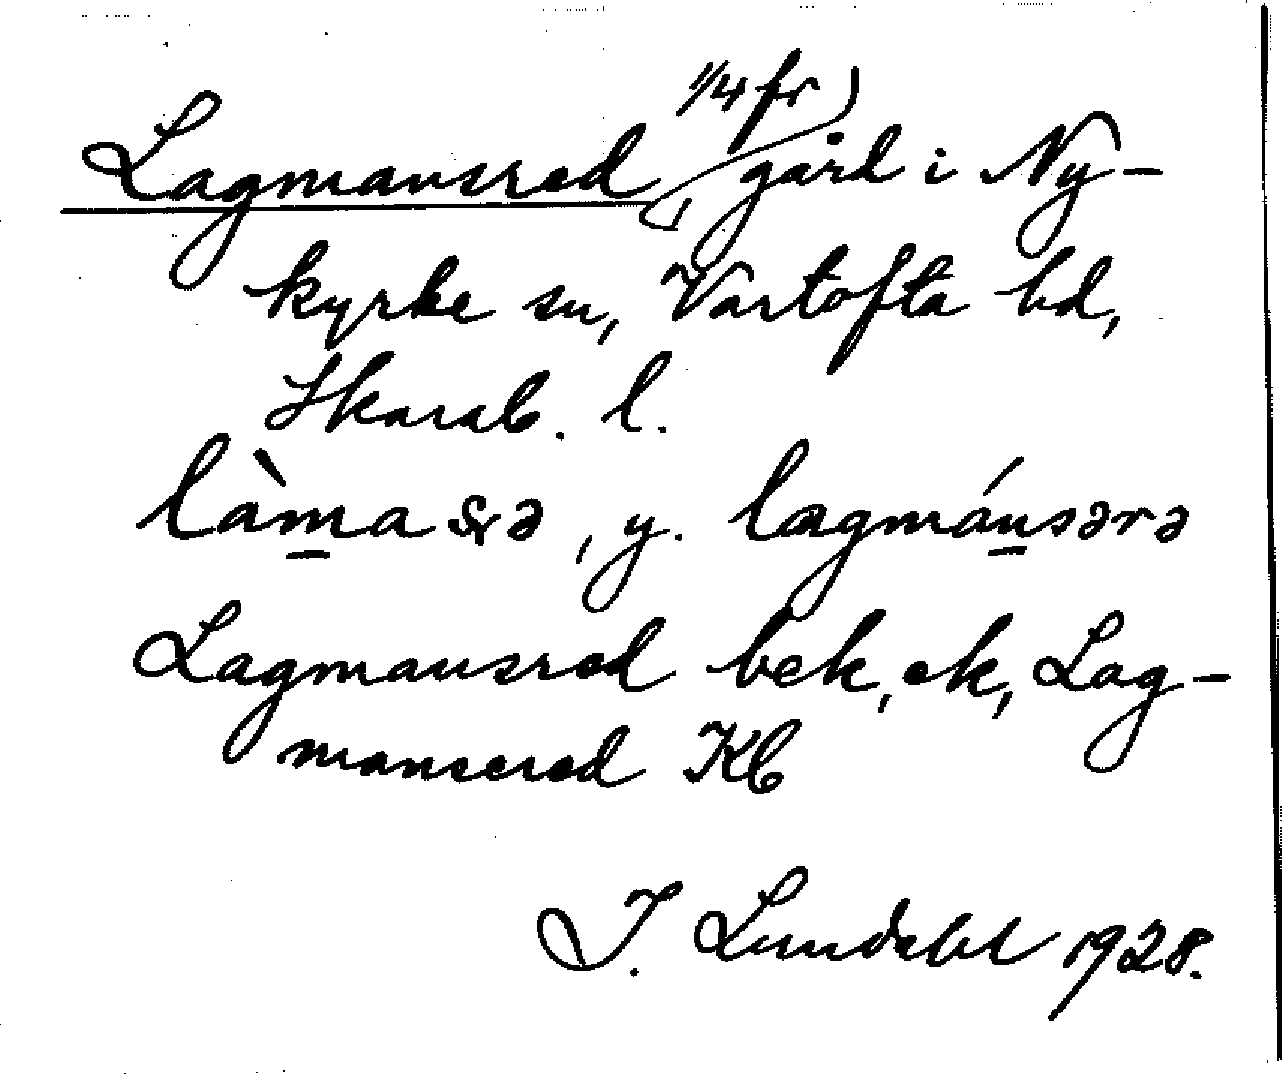 Lagmansred, 1/4 fr gård i Ny-
kyrke sn, Vartofta hd,
Skarab. l.
làmasrə, y. lagmánsərə
Lagmansred bek, ek, Lag-
mansered Kb
I. Lundahl 1928.